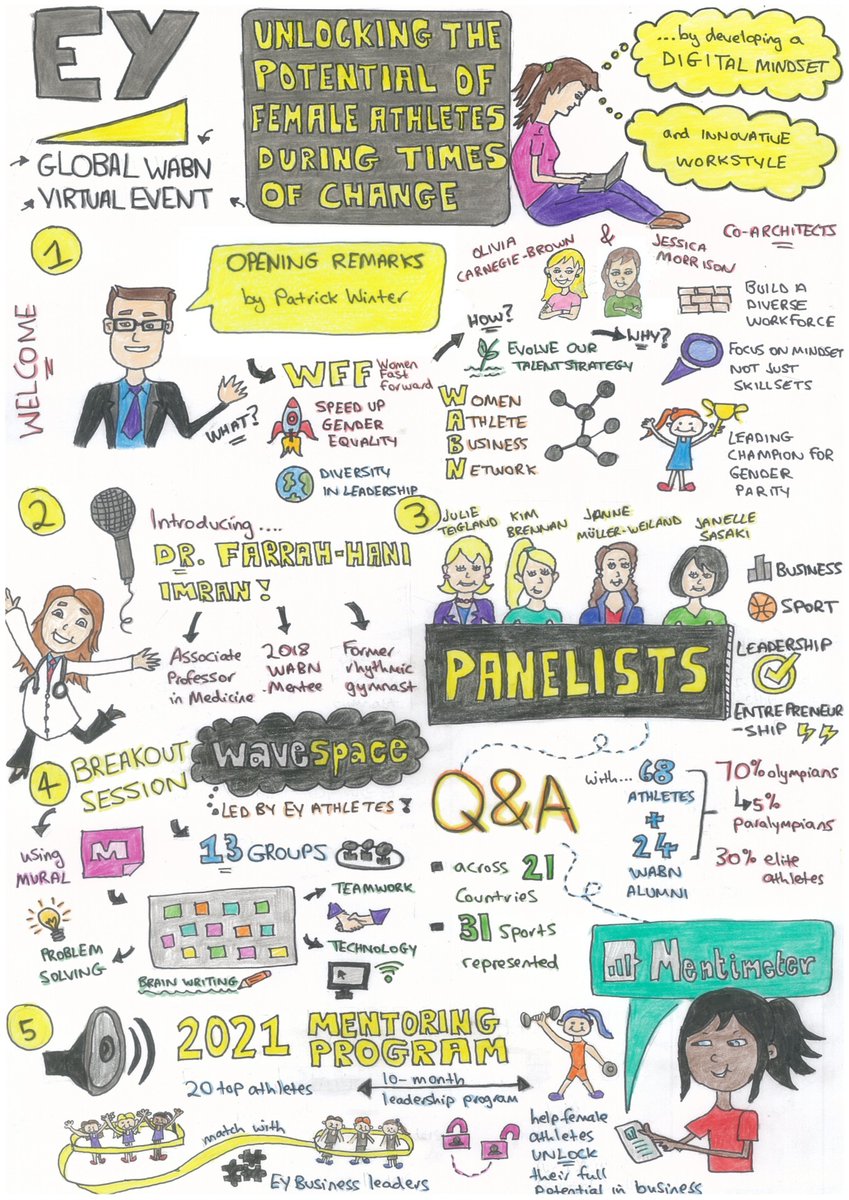 EY
GLOBAL WABN
VIRTUAL EVENT
UNLOCKING THE
POTENTIAL OF
FEMALE ATHLETES
DURING TIMES
OF CHANGE
...by developing a
DIGITAL MINDSET
and INNOVATIVE
WORKSTYLE
1
WELCOME
OPENING REMARKS
by Patrick Winter
WHAT?
WFF Women
Fast
Forward
SPEED UP
GENDER
EQUALITY
DIVERSITY
IN LEADERSHIP
OLIVIA
CARNEGIE-BROWN
&
JESSICA
MORRISON
CO-ARCHITECTS
HOW?
EVOLVE OUR
TALENT STRATEGY
WOMEN
ATHLETE
BUSINESS
NETWORK
WHY?
BUILD A
DIVERSE
WORKFORCE
FOCUS ON MINDSET
NOT JUST
SKILLSETS
LEADING
CHAMPION FOR
GENDER
PARITY
2
Introducing....
DR. FARRAH-HANI
IMRAN!
Associate
Professor
in Medicine
2018
WABN
Mentee
Former
rhythmic
gymnast
3
JULIE
TEIGLAND
KIM
BRENNAN
JANNE
MÜLLER-WEILAND
JANELLE
SASAKI
PANELISTS
BUSINESS
SPORT
LEADERSHIP
ENTREPRENEUR
-SHIP
4
BREAKOUT
SESSION
wavespace
LED BY EY ATHLETES!
using
MURAL
M
13 GROUPS
PROBLEM
SOLVING
BRAIN WRITING
TEAMWORK
TECHNOLOGY
Q&A
with... 68
ATHLETES
+
24
WABN
ALUMNI
70% olympians
5%
paralympians
30% elite
athletes
across 21
Countries
31 Sports
represented
Mentimeter
5
2021 MENTORING
PROGRAM
20 top athletes
10-month
leadership program
match with
EY Business leaders
help female
athletes
UNLOCK
their full
potential in business